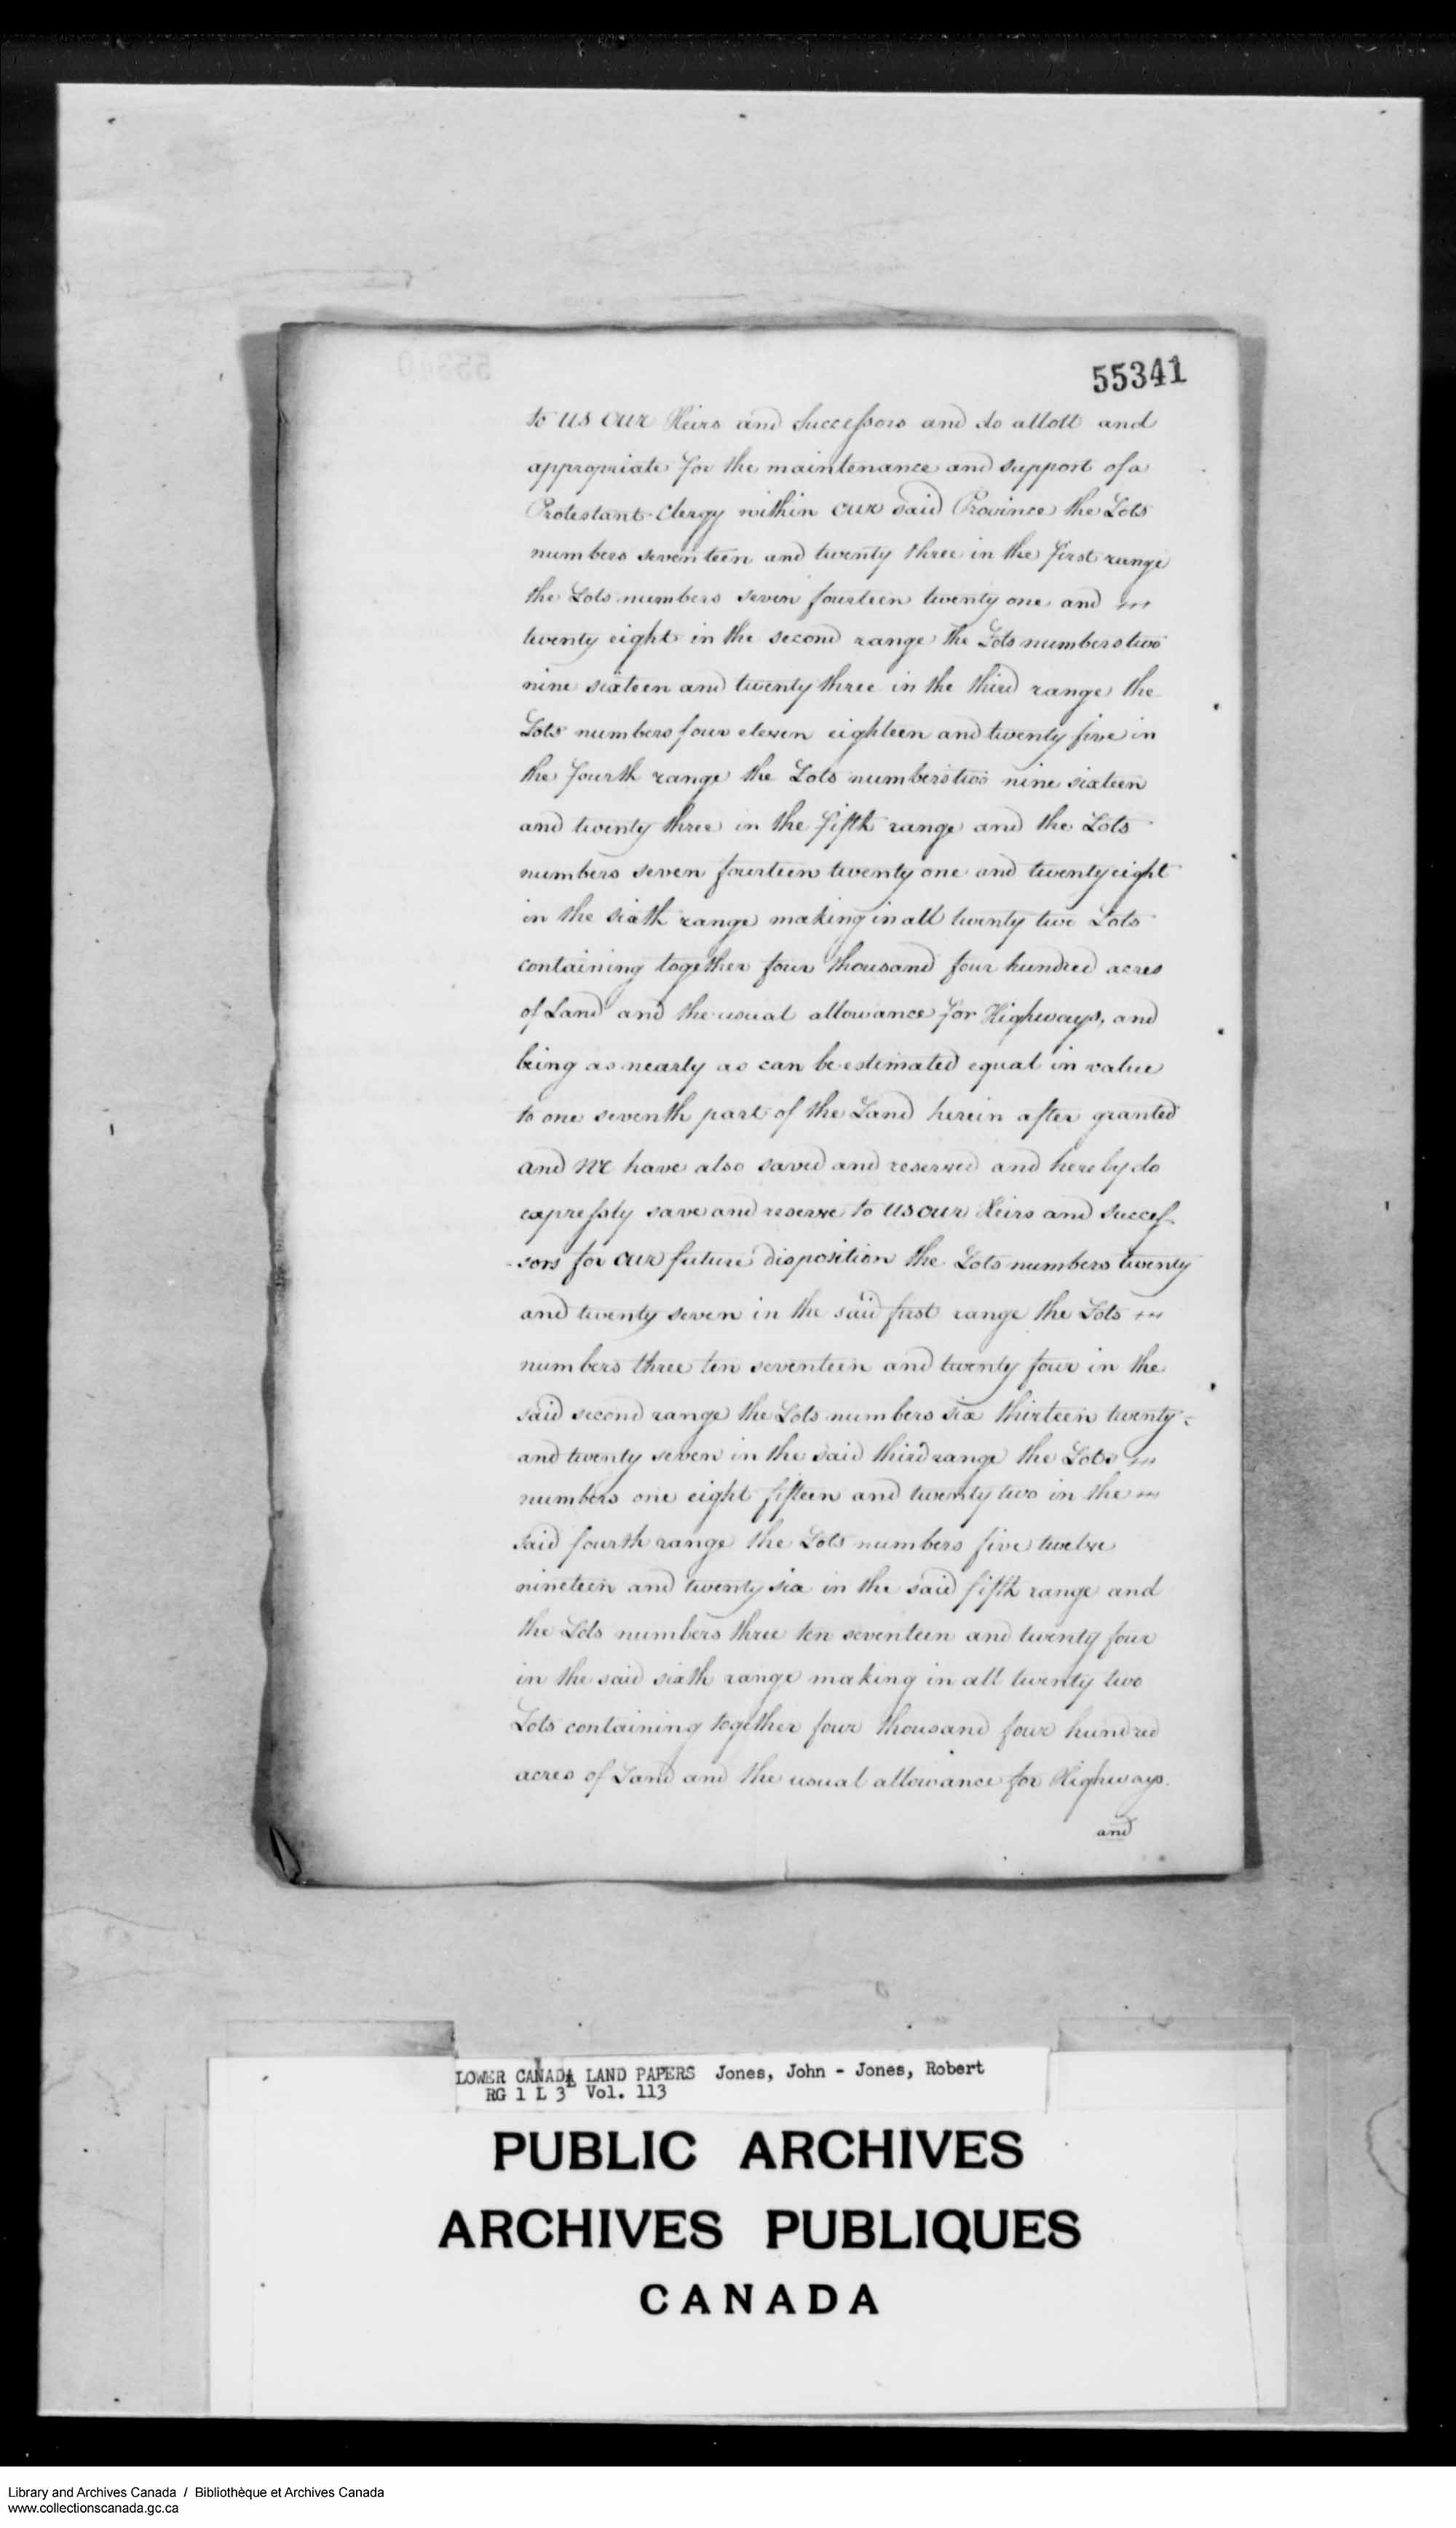 55341
to us our Heirs and Successors and do allott and
appropriate for the maintenance and support of a
Protestant Clergy within our said Province the Lots
numbers seventeen and twenty three in the first range
the Lots numbers seven fourteen twenty one and
twenty eight in the second range the Lots numbers two
nine sixteen and twenty three in the third range the
Lots numbers four eleven eighteen and twenty five in
the fourth range the Lots numbers two nine sixteen
and twenty three in the fifth range and the Lots
numbers seven fourteen twenty one and twenty eight
in the sixth range making in all twenty two Lots
containing together four thousand four hundred acres
of Land and the usual allowance for Highways, and
being as nearly as can be estimated equal in value
to one seventh part of the Land herein after granted
and We have also saved and reserved and hereby do
expressly save and reserve to us our Heirs and Succes-
-sors for our future disposition the Lots numbers twenty
and twenty seven in the said first range the Lots
numbers three ten seventeen and twenty four in the
said second range the Lots numbers six thirteen twenty
and twenty seven in the said third range the Lots
numbers one eight fifteen and twenty two in the
said fourth range the Lots numbers five twelve
nineteen and twenty six in the said fifth range and
the Lots numbers three ten seventeen and twenty four
in the said sixth range making in all twenty two
Lots containing together four thousand four hundred
acres of Land and the usual allowance for Highways.
and
LOWER CANADA LAND PAPERS Jones, John - Jones, Robert
RG 1 L 3 Vol. 113
PUBLIC ARCHIVES
ARCHIVES PUBLIQUES
CANADA
Library and Archives Canada / Bibliothèque et Archives Canada
www.collectionscanada.gc.ca